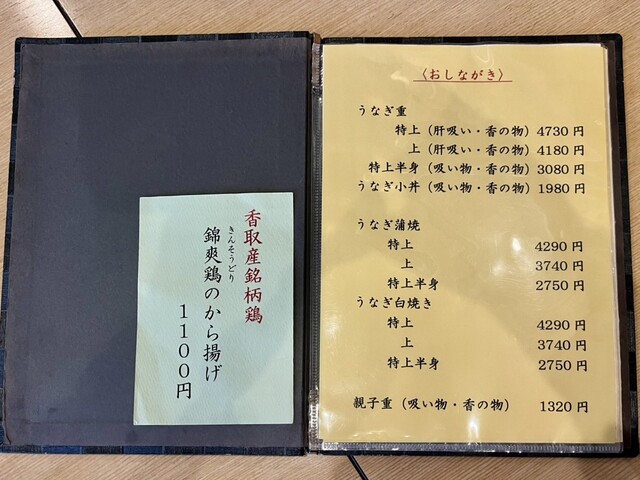 香取産銘柄鶏
きんそうどり
錦爽鶏のから揚げ
1100円
〈おしながき〉
うなぎ重
特上（肝吸い・香の物）4730円
上（肝吸い・香の物）4180円
特上半身（吸い物・香の物）3080円
うなぎ小丼（吸い物・香の物）1980円
うなぎ蒲焼
特上 4290円
上 3740円
特上半身 2750円
うなぎ白焼き
特上 4290円
上 3740円
特上半身 2750円
親子重（吸い物・香の物） 1320円